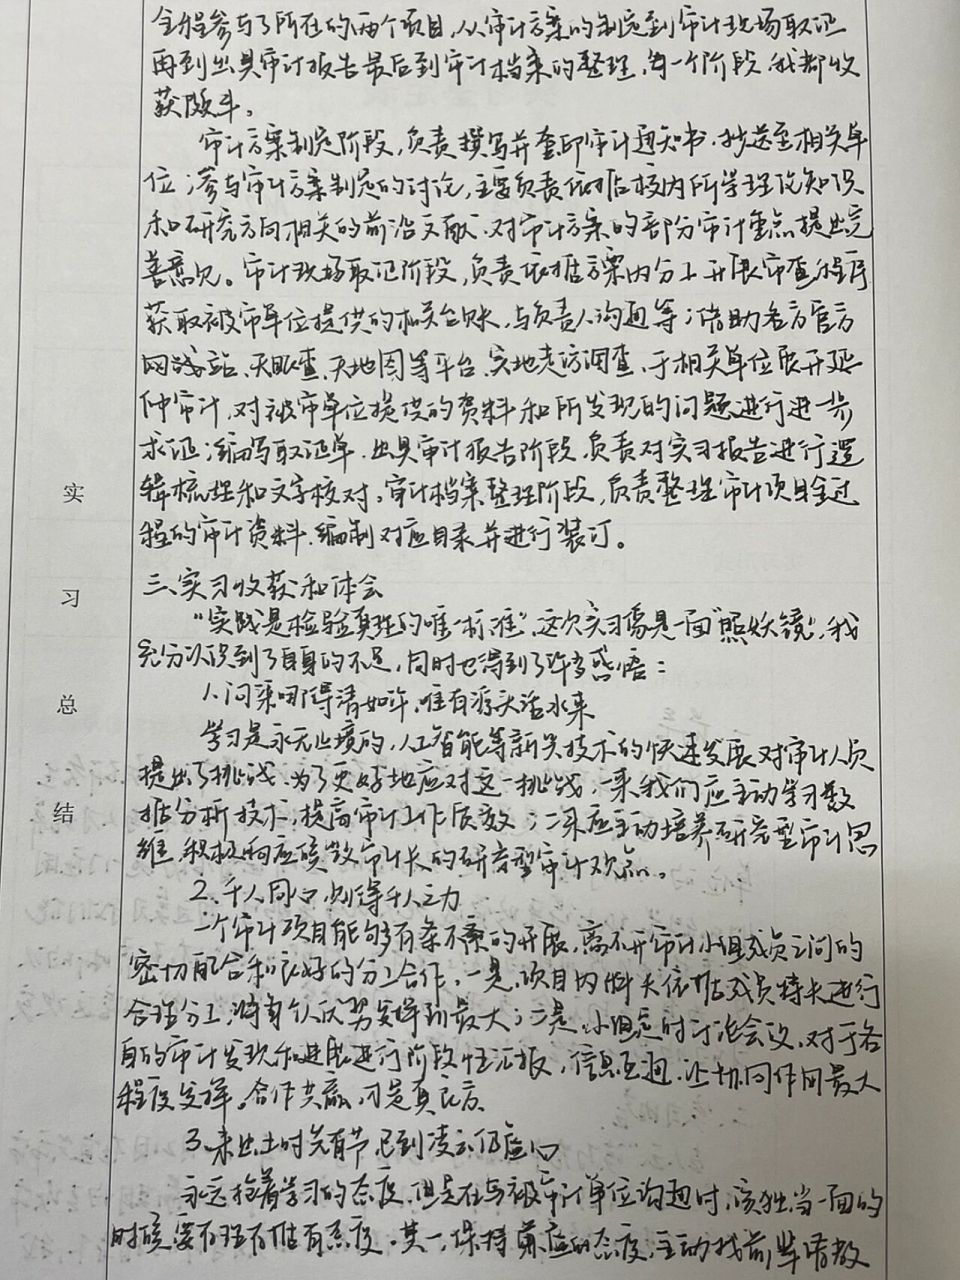 全程参与了所在的两个项目,从审计方案的制定到审计现场取证
再到出具审计报告最后到审计档案的整理,每一个阶段,我都收
获颇丰。
审计方案制定阶段,负责撰写并套印审计通知书,抄送至相关单
位;参与审计方案制定的讨论,主要负责依据校内所学理论知识
和研究方向相关的前沿文献,对审计方案的部分审计重点提出完
善意见。审计现场取证阶段,负责依据方案内分工开展审查程序
获取被审单位提供的相关台账,与负责人沟通等;借助各方官方
网站、天眼查、天地图等平台,实地走访调查,于相关单位展开延
伸审计,对被审单位提供的资料和所发现的问题进行进一步
求证;编写取证单。出具审计报告阶段,负责对实习报告进行逻
辑梳理和文字校对。审计档案整理阶段,负责整理审计项目全过
程的审计资料,编制对应目录并进行装订。
三、实习收获和体会
"实践是检验真理的唯一标准",这次实习像是一面"照妖镜",我
充分认识到了自身的不足,同时也得到了许多感悟:
1.问渠哪得清如许,唯有源头活水来
学习是永无止境的,人工智能等新兴技术的快速发展对审计人员
提出了挑战,为了更好地应对这一挑战,一来我们应主动学习数
据分析技术,提高审计工作质效;二来应主动培养研究型审计思
维,积极响应侯凯审计长的研究型审计观点。
2.千人同心,则得千人之力
一个审计项目能够有条不紊的开展,离不开审计小组成员之间的
密切配合和良好的分工合作。一是,项目内科长依据成员特长进行
合理分工,将每个人的优势发挥到最大;二是,小组定时讨论会议,对于各
自的审计发现和进展进行阶段性汇报,信息互通,让协同作用最大
程度发挥。合作共赢,才是真良方
3.未出土时先有节,已到凌云仍虚心
永远抱着学习的态度,但是在与被审计单位沟通时,该独当一面的
时候要有理有据有态度。其一,保持谦虚的态度,主动找前辈请教
实
习
总
结